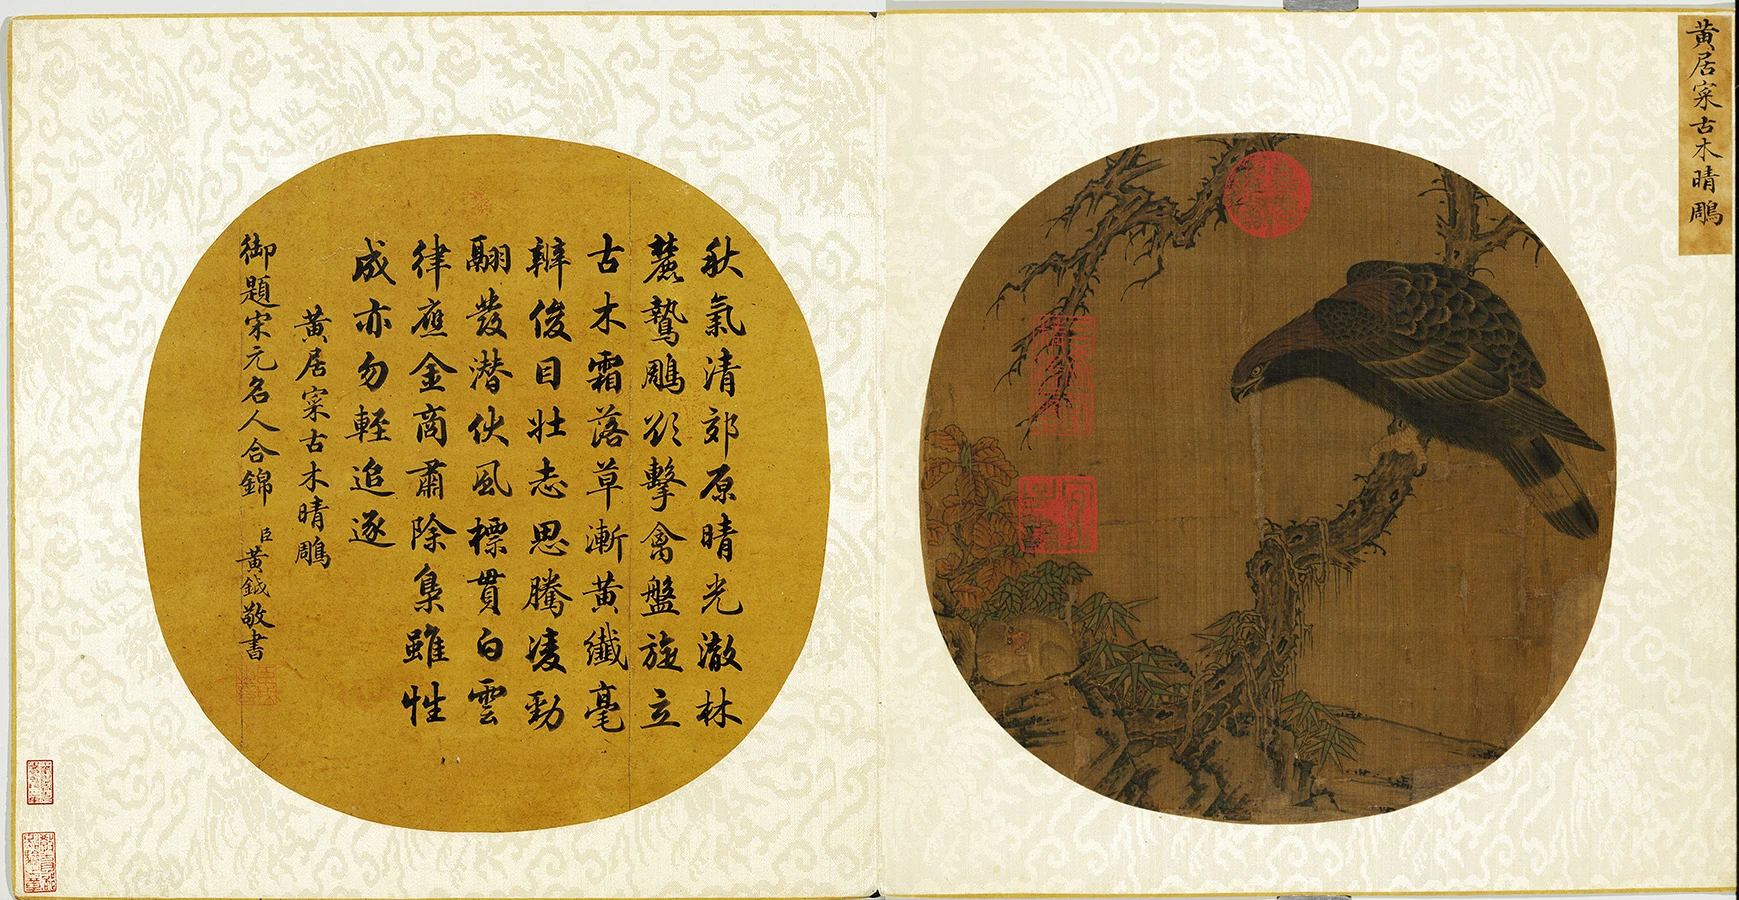 黄居寀古木晴鵰
秋氣清郊原晴光澈林
麓鷙鵰欲擊禽盤旋立
古木霜落草漸黄纖毫
辨俊目壯志思騰凌勁
翮發潛伏風標貫白雲
律應金商肅除梟雖性
成亦勿輕追逐
黄居寀古木晴鵰
御題宋元名人合錦 臣黄鉞敬書